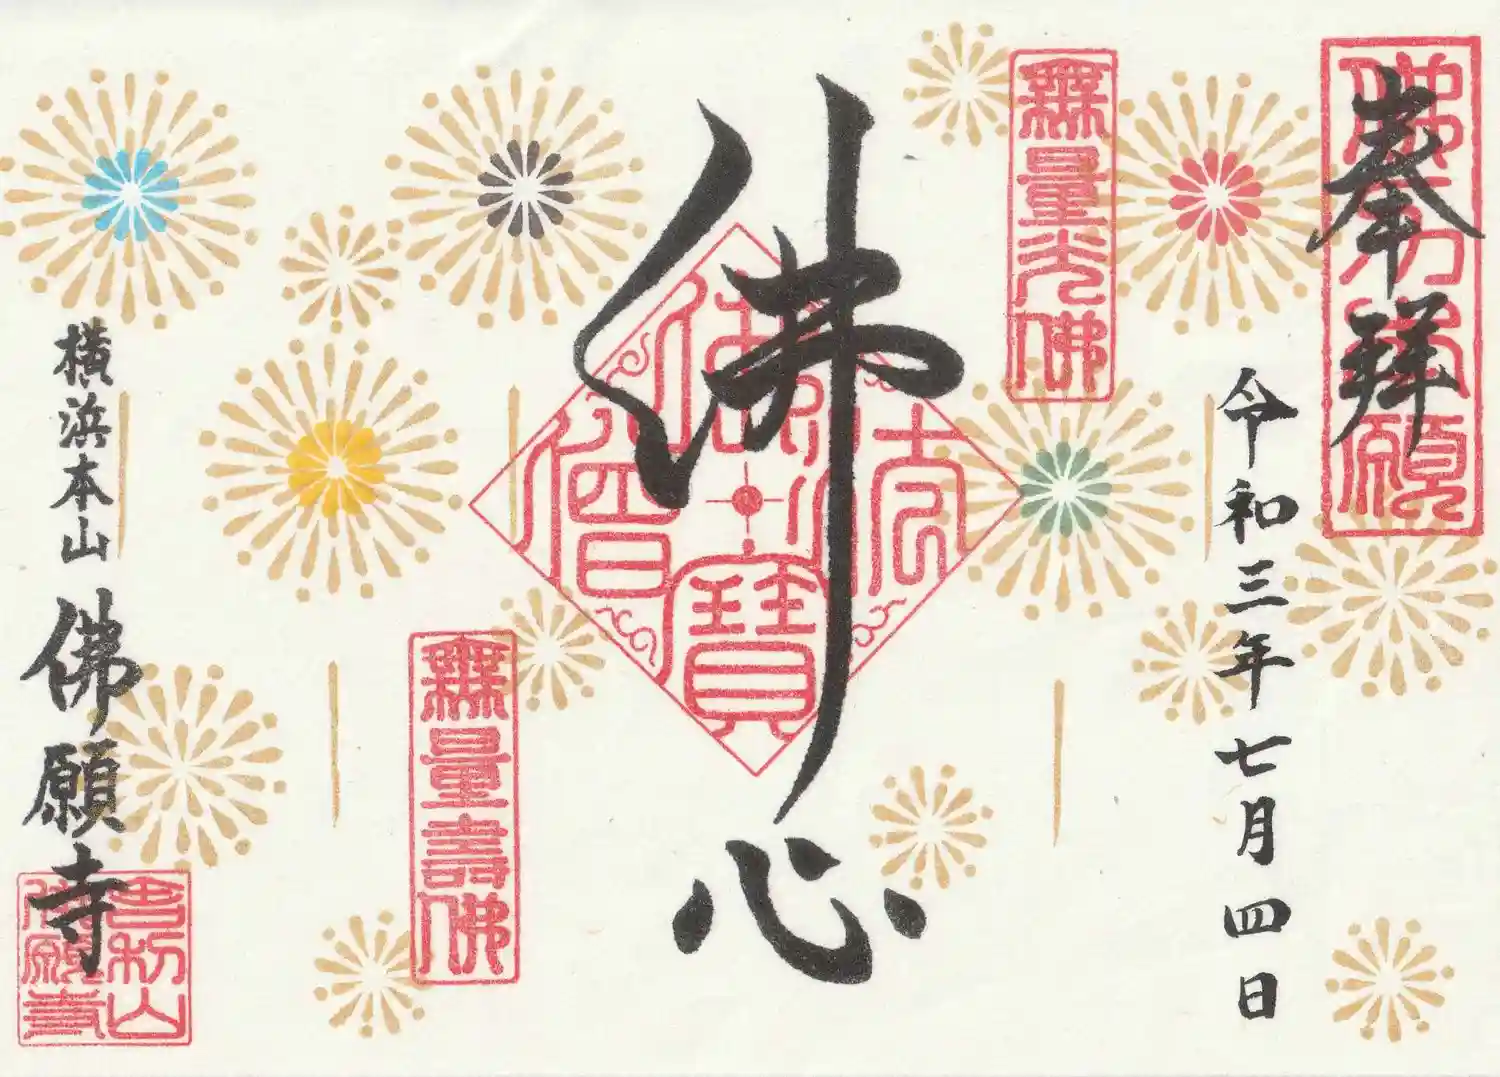 奉拝
令和三年七月四日
無量光佛
佛心
佛法僧寶
無量壽佛
横浜本山
佛願寺
舎利山
佛願寺